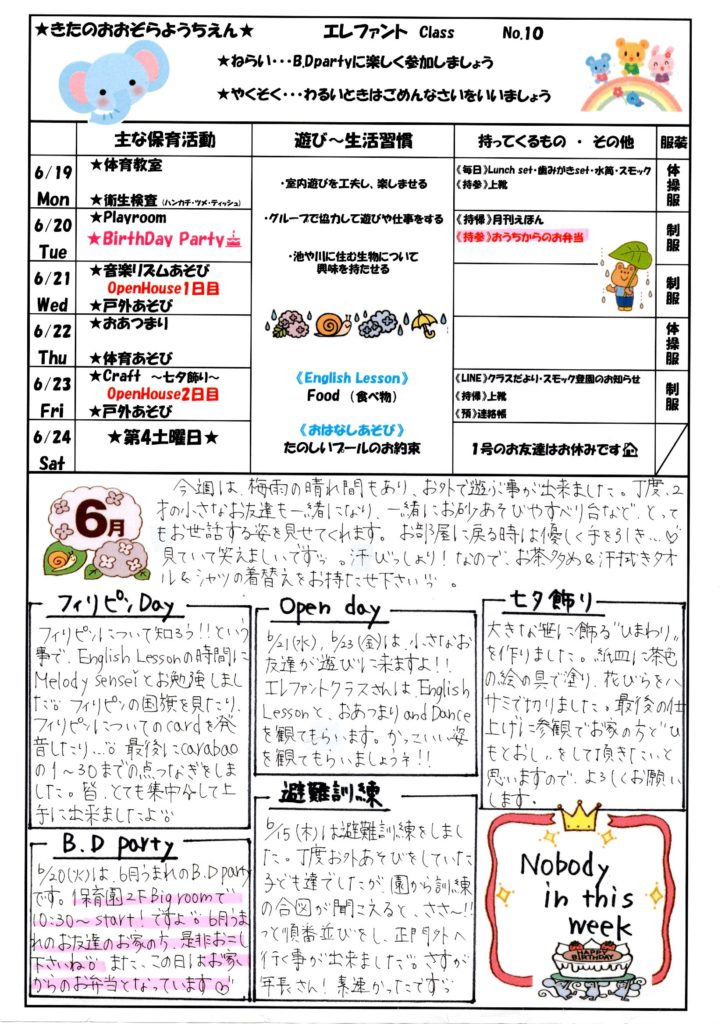 ★きたのおおぞらようちえん★ エレファント Class No.10
★ねらい･･･B.Dpartyに楽しく参加しましょう
★やくそく･･･わるいときはごめんなさいをいいましょう
主な保育活動 遊び～生活習慣 持ってくるもの ・ その他 服装
6/19 Mon
★体育教室
★衛生検査(ハンカチ・ツメ・ティッシュ)
《毎日》Lunch set・歯みがきset・水筒・スモック
《持参》上靴
体操服
6/20 Tue
★Playroom
★BirthDay Party
《持帰》月刊えほん
《持参》おうちからのお弁当
制服
6/21 Wed
★音楽リズムあそび
OpenHouse1日目
★戸外あそび
制服
6/22 Thu
★おあつまり
★体育あそび
体操服
6/23 Fri
★Craft ～七夕飾り～
OpenHouse2日目
★戸外あそび
《LINE》クラスだより・スモック登園のお知らせ
《持帰》上靴
《預》連絡帳
制服
6/24 Sat
★第4土曜日★
1号のお友達はお休みです
・室内遊びを工夫し、楽しませる
・グループで協力して遊びや仕事をする
・池や川に住む生物について
興味を持たせる
《English Lesson》
Food （食べ物）
《おはなしあそび》
たのしいプールのお約束
6月
今週は、梅雨の晴れ間もあり、お外で遊ぶ事が出来ました。丁度、2
才の小さなお友達も一緒になり、一緒にお砂あそびやすべり台など、とって
もお世話する姿を見せてくれます。お部屋に戻る時は優しく手を引き…♡
見ていて笑えましいですッ。汗びっしょり！なので、お茶多め&汗拭きタオ
ル&シャツの着替えをお持たせ下さい。
フィリピンDay
フィリピンについて知ろう!!という
事で、English Lessonの時間に
Melody senseiとお勉強しまし
た フィリピンの国旗を見たり、
フィリピンについてのcardを発
音したり… 最後にcarabao
の1～30までの点つなぎをしま
した。皆、とても集中して上
手に出来ましたよ
B.D party
6/20(火)は、6月うまれのB.D party
です。保育園2F Big roomで
10:30～start!ですよ 6月うま
れのお友達のお家の方、是非お越し
下さいね また、この日はお家
からのお弁当となっています
Open day
6/21(水)、6/23(金)は、小さなお
友達が遊びに来ますよ!!
エレファントクラスさんは、English
Lessonと、おあつまりandDance
を観てもらいます。かっこいい姿
を観てもらいましょうネ!!
避難訓練
6/15(木)は避難訓練をしまし
た。丁度お外あそびをしていた
子ども達でしたが、園から訓練
の合図が聞こえると、ささ～!!
っと順番並びをし、正門外へ
行く事が出来ました。さすが
年長さん！素速かったです
七夕飾り
大きな笹に飾る"ひまわり"
を作りました。紙皿に茶色
の絵の具で塗り、花びらをハ
サミで切りました。最後の仕
上げに参観でお家の方と"ひ
もとおし"をして頂きたいと
思いますので、よろしくお願い
します。
Nobody
in this
week
HAPPY
BIRTHDAY